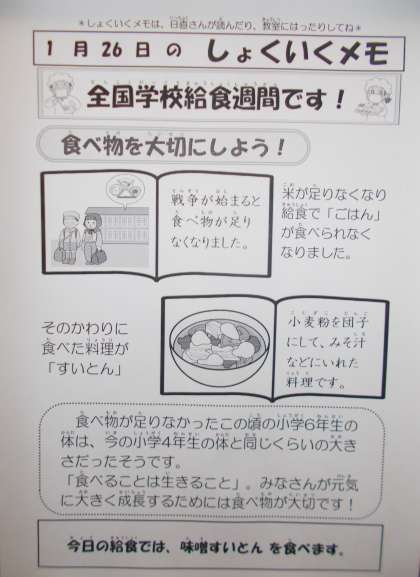 ＊しょくいくメモは、日直さんが読んだり、教室にはったりしてね＊
１月26日の しょくいくメモ
全国学校給食週間です！
食べ物を大切にしよう！
戦争が始まると
食べ物が足り
なくなりました。
米が足りなくなり
給食で「ごはん」
が食べられなく
なりました。
そのかわりに
食べた料理が
「すいとん」
小麦粉を団子
にして、みそ汁
などにいれた
料理です。
食べ物が足りなかったこの頃の小学6年生の
体は、今の小学4年生の体と同じくらいの大き
さだったそうです。
「食べることは生きること」。みなさんが元気
に大きく成長するためには食べ物が大切です！
今日の給食では、味噌すいとん を食べます。